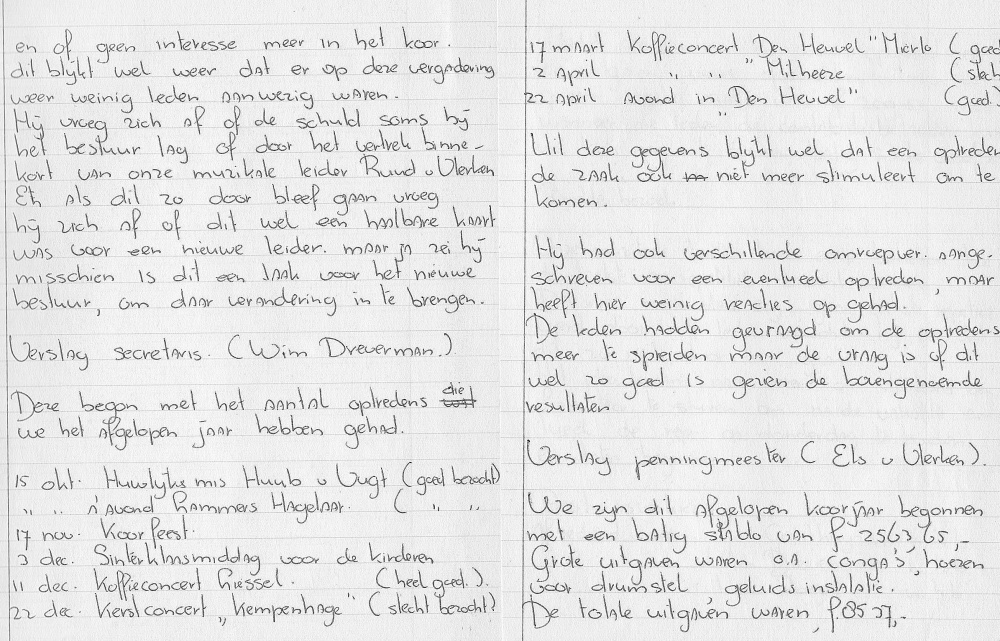 en of geen interesse meer in het koor.
dit blijkt wel weer dat er op deze vergadering
weer weinig leden aanwezig waren.
Hij vroeg zich af of de schuld soms bij
het bestuur lag of door het vertrek binne-
kort van onze muzikale leider Ruud v Vlerken
En als dit zo door bleef gaan vroeg
hij zich af of dit wel een haalbare kaart
was voor een nieuwe leider. maar ja zei hij
misschien is dit een zaak voor het nieuwe
bestuur, om daar verandering in te brengen.
Verslag secretaris. (Wim Dreverman.)
Deze begon met het aantal optredens die
we het afgelopen jaar hebben gehad.
15 okt. Huwlijks mis Huub v Vugt (goed bezocht)
" " 's avond Hagelaar. ( " "
17 nov. Koorfeest.
3 dec. Sinterklaasmiddag voor de kinderen
11 dec. Koffieconcert Giessel. (heel goed.).
22 dec. Kerstconcert „Kempenhage" (slecht bezocht)
17 maart Koffieconcert Den Heuvel" Mierlo (goed
2 April " " " Milheeze (slech
22 April avond in "Den Heuvel" (goed.)
Uit deze gegevens blijkt wel dat een optreden
de zaak ook niet meer stimuleert om te
komen.
Hij had ook verschillende omroepver. aange-
schreven voor een eventueel optreden, maar
heeft hier weinig reacties op gehad.
De leden hadden gevraagd om de optredens
meer te spreiden maar de vraag is of dit
wel zo goed is gezien de bovengenoemde
resultaten
Verslag penningmeester (Els v Vlerken).
We zijn dit afgelopen koorjaar begonnen
met een batig saldo van f 2563,65,-
Grote uitgaven waren o.a. conga's, hoezen
voor drumstel, geluids instalatie.
De totale uitgaven waren f.8537,-